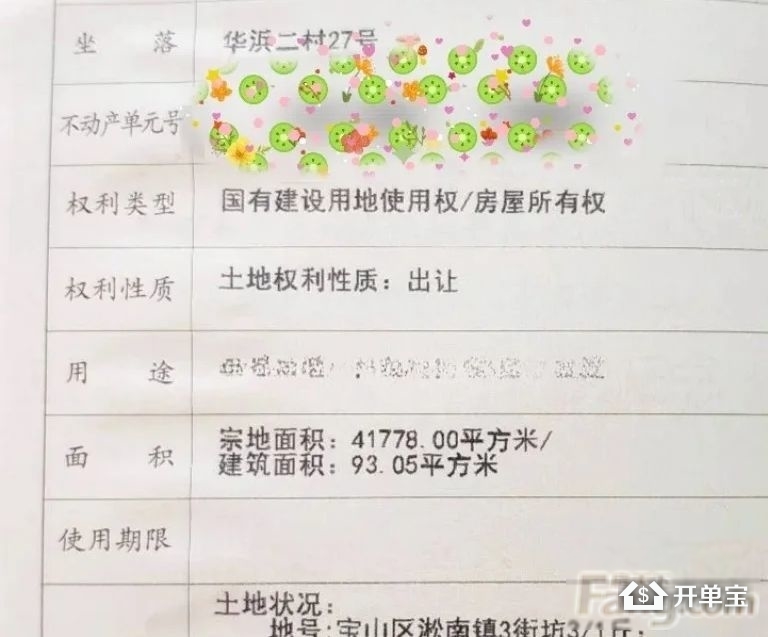 坐落 华浜二村27号
不动产单元号
权利类型 国有建设用地使用权/房屋所有权
权利性质 土地权利性质：出让
用途
面积 宗地面积：41778.00平方米/
建筑面积：93.05平方米
使用期限
土地状况：
地号:宝山区淞南镇3街坊3/1丘;
开单宝